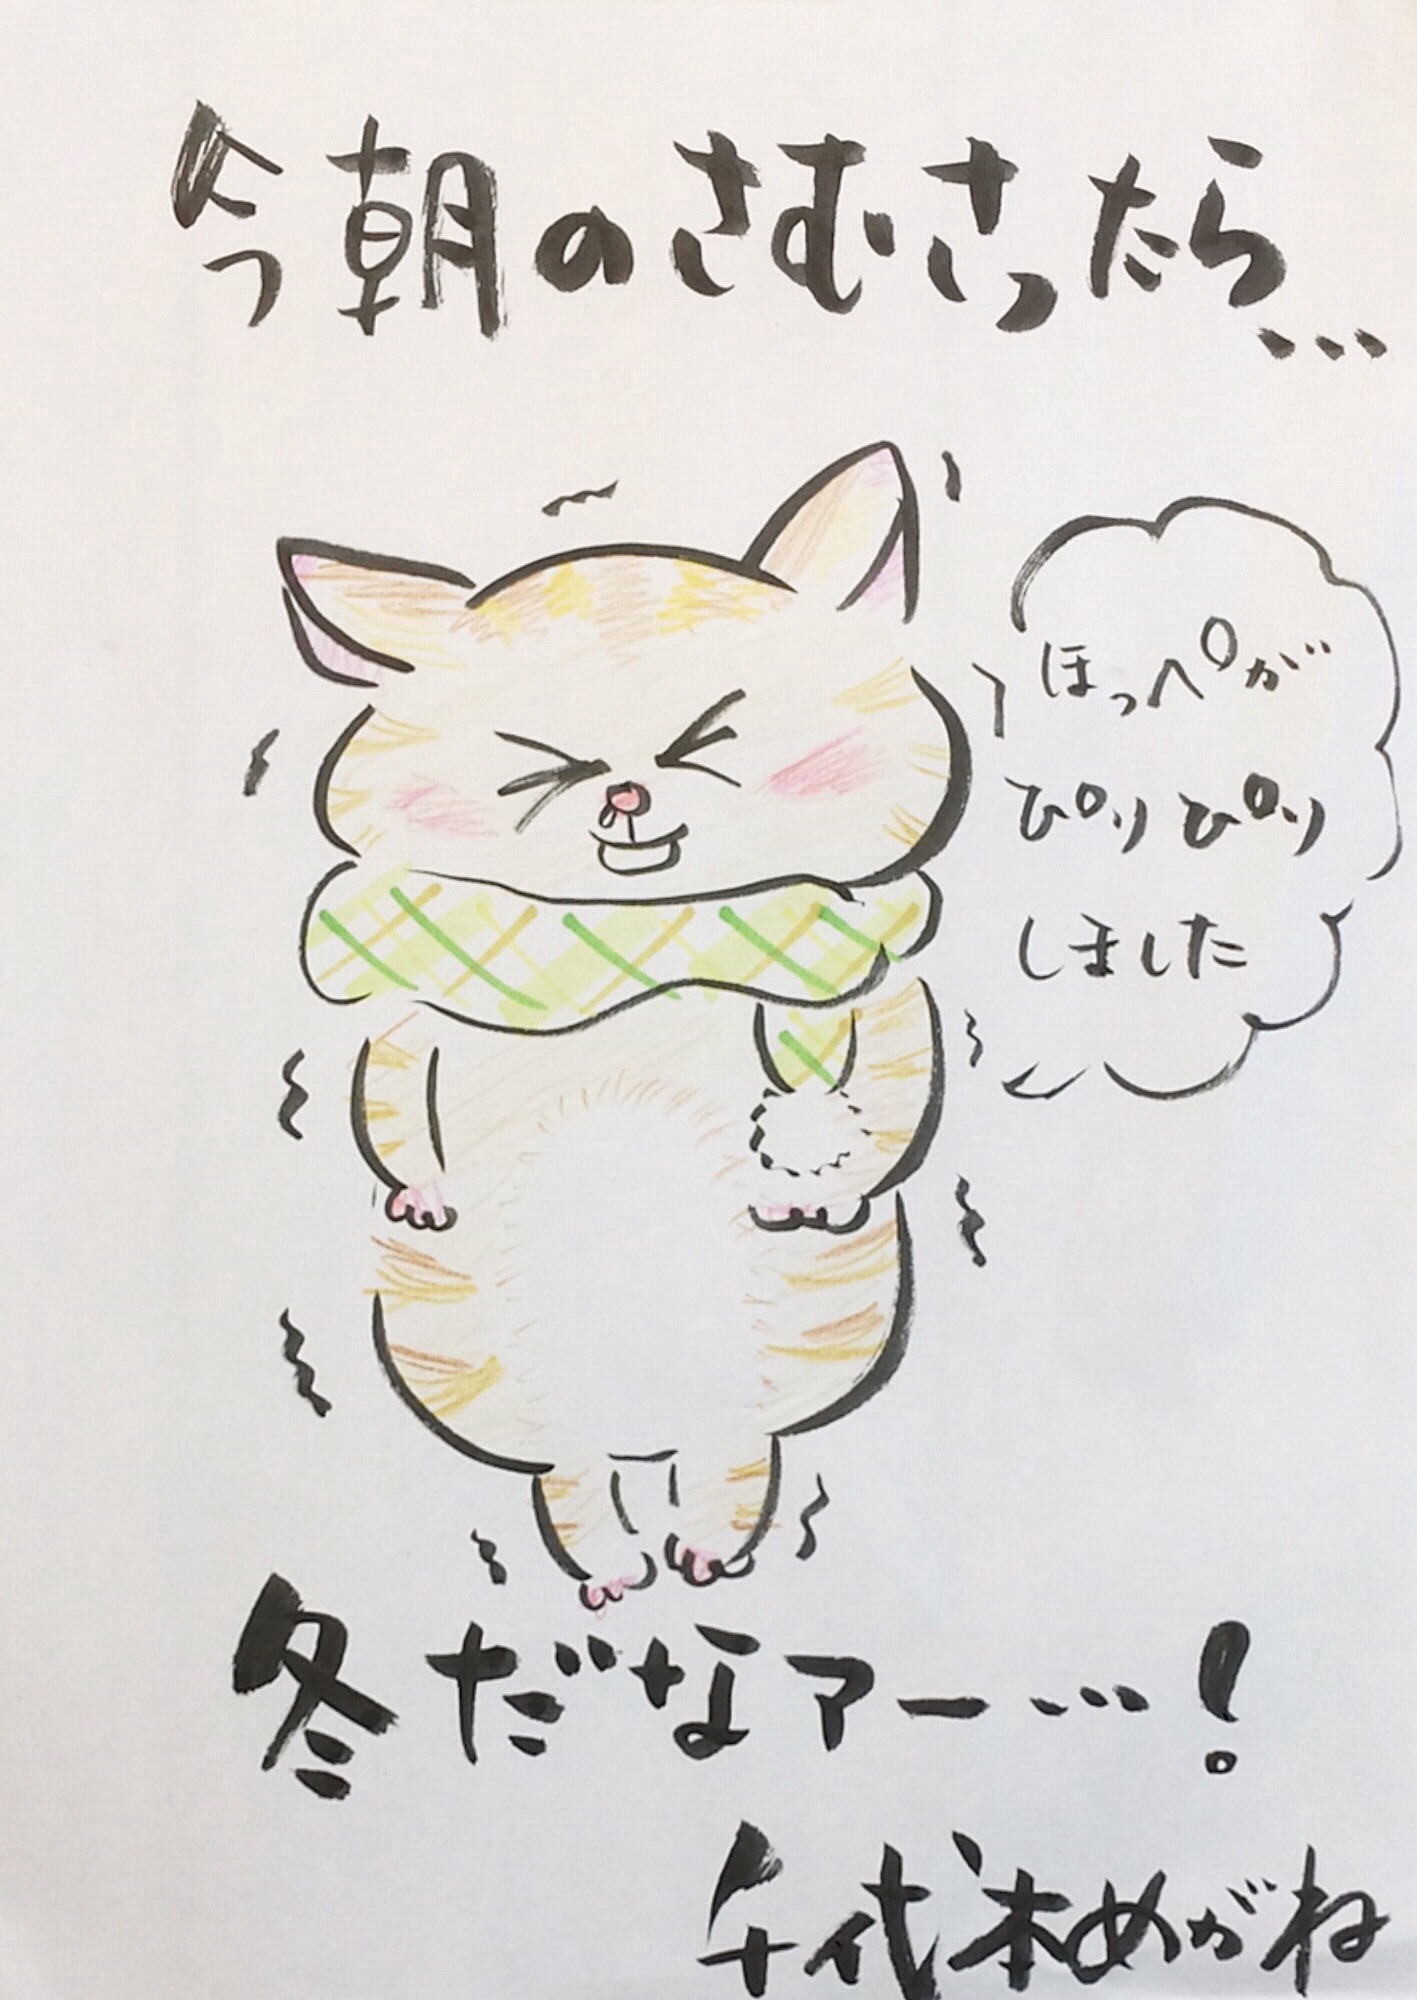 今朝のさむさったら…
ほっぺが
ぴりぴり
しました
冬だなァー…！
千代木めがね